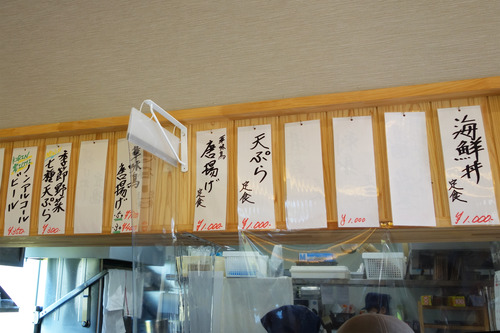 海鮮丼
定食
¥1.000
¥1.000
天ぷら
定食
¥1.000
唐揚げ
定食
¥1.000
唐揚げ
季節野菜
七種天ぷら
ノンアルコール
ビール